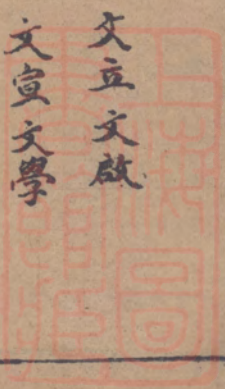 文立文啟
文宣文學